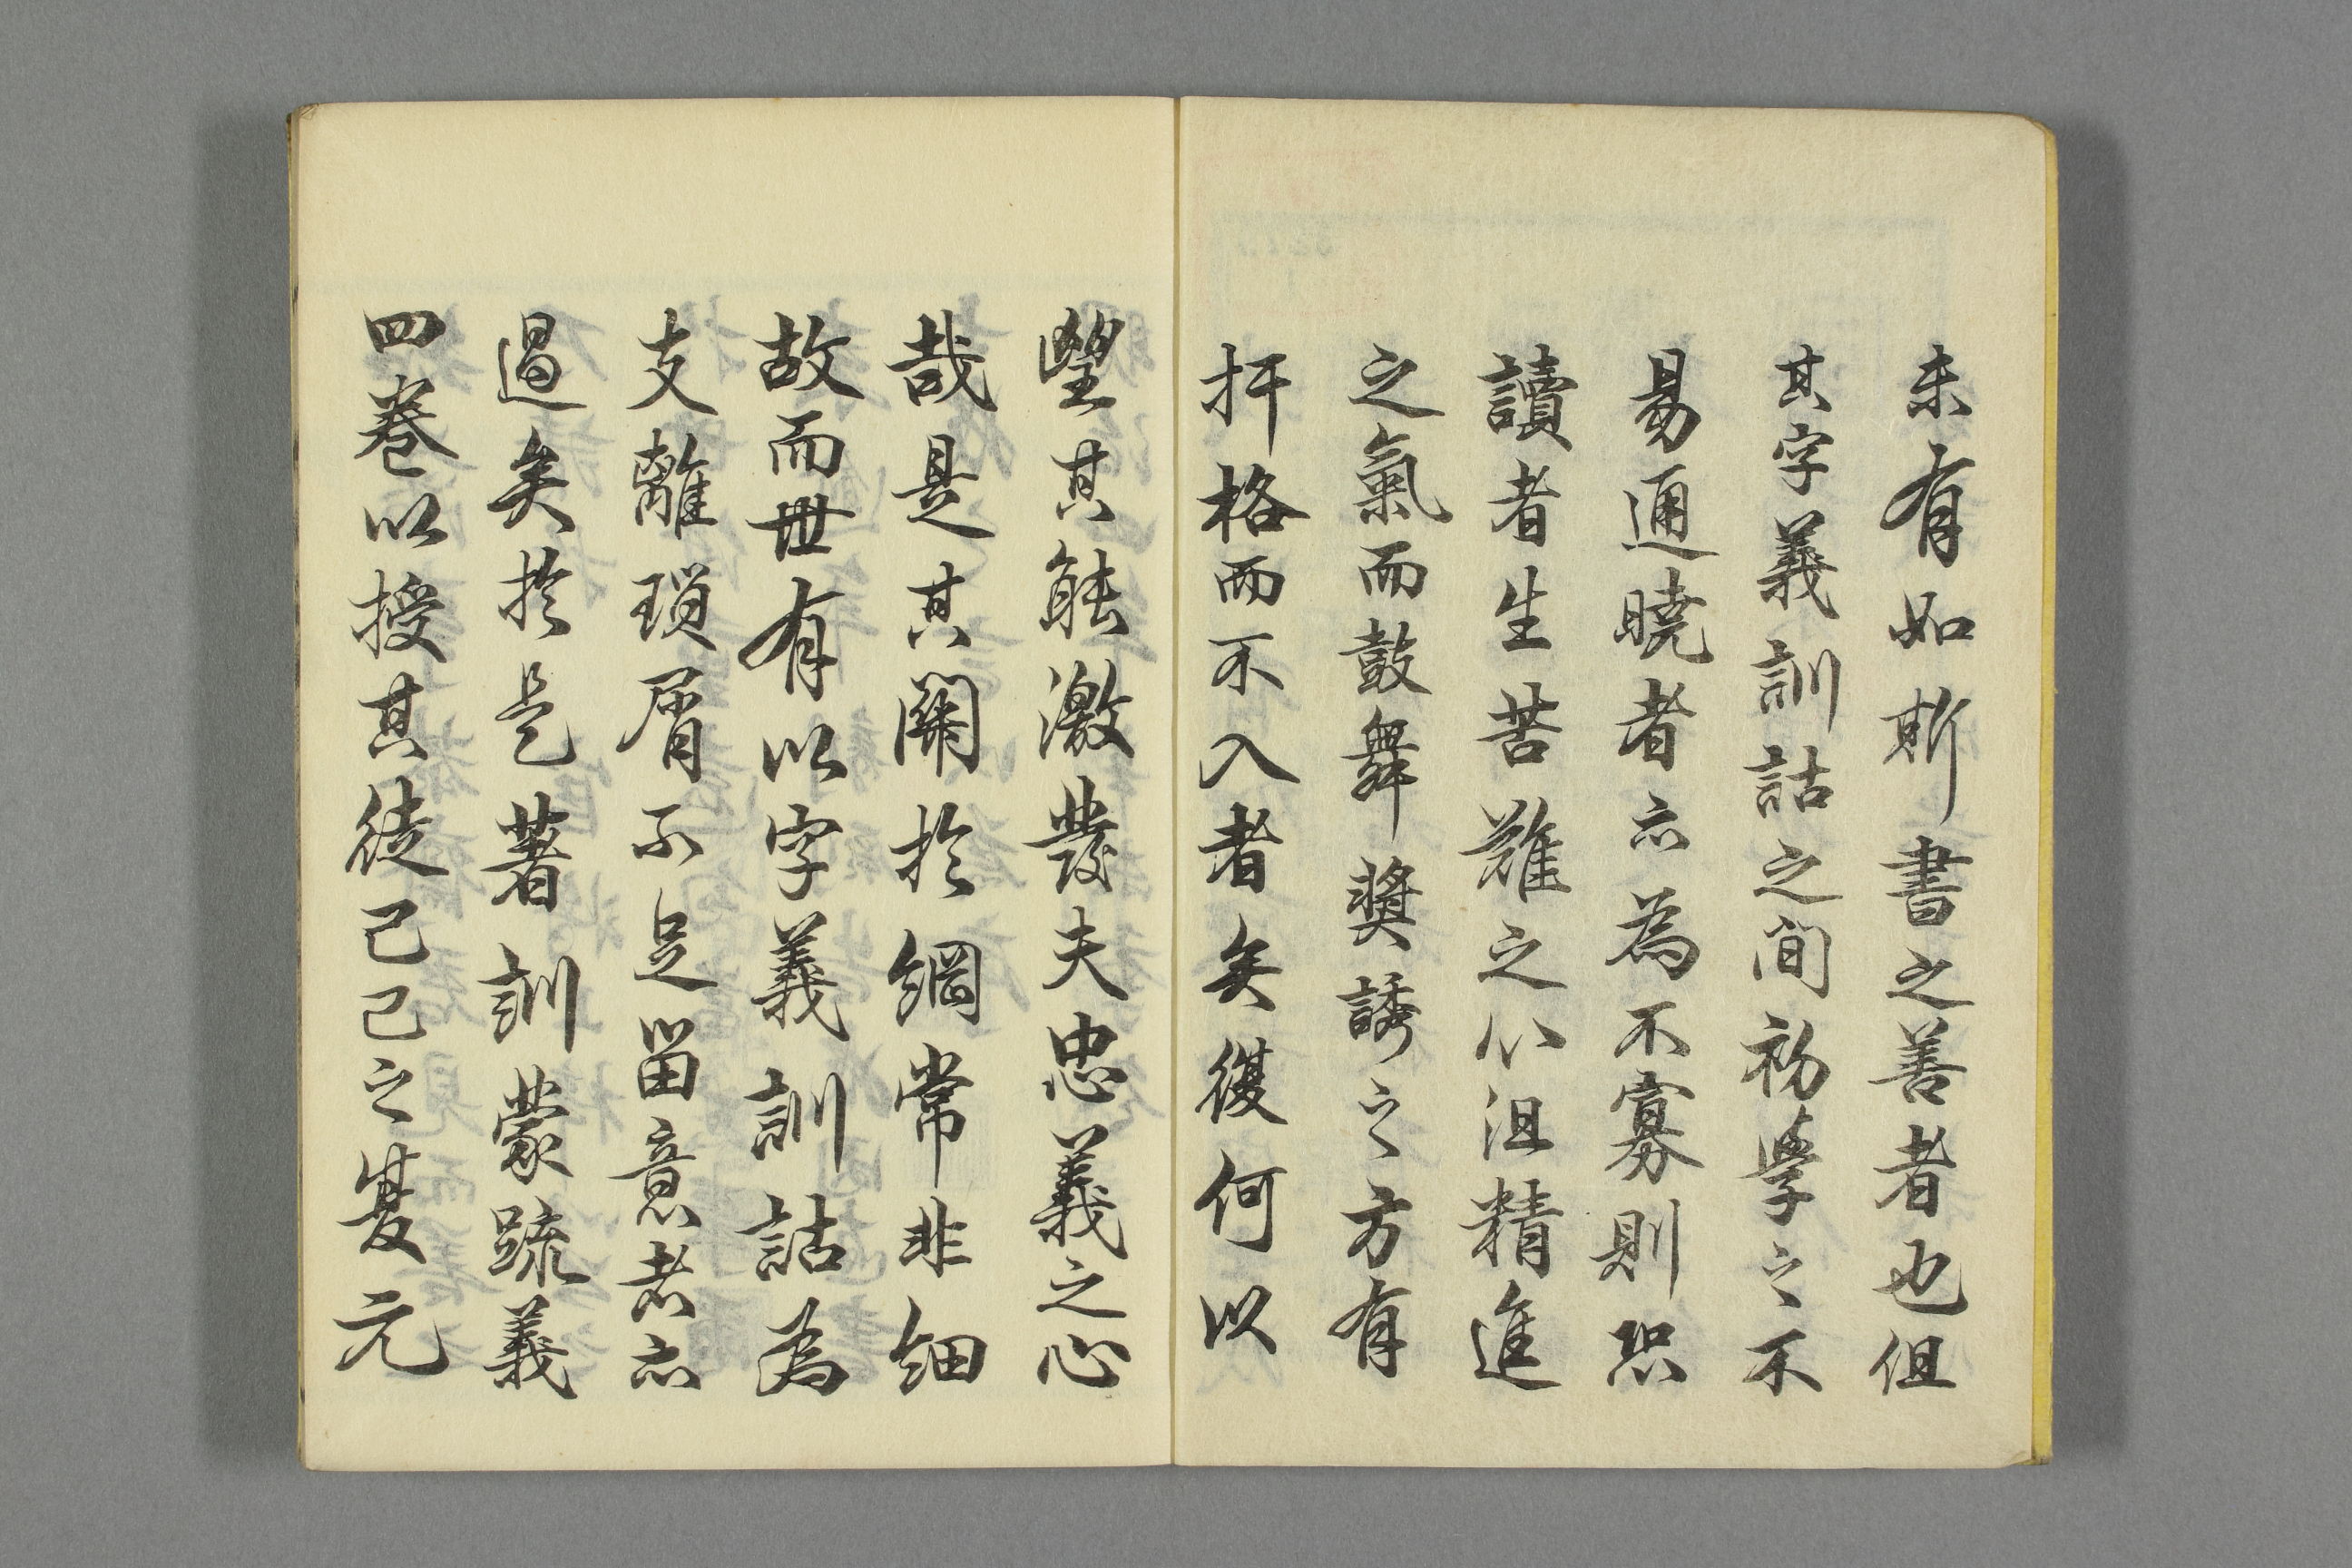 未有如斯書之善者也但
其字義訓詁之間初學之不
易通曉者亦為不寡則恐
讀者生苦難之心沮精進
之氣而鼓舞奬誘之方有
扞格而不入者矣復何以
望其能激發夫忠義之心
哉是其關於綱常非細
故而世有以字義訓詁為
支離瑣屑不足留意者亦
過矣於是著訓蒙疏義
四卷以授其徒己巳之夏元